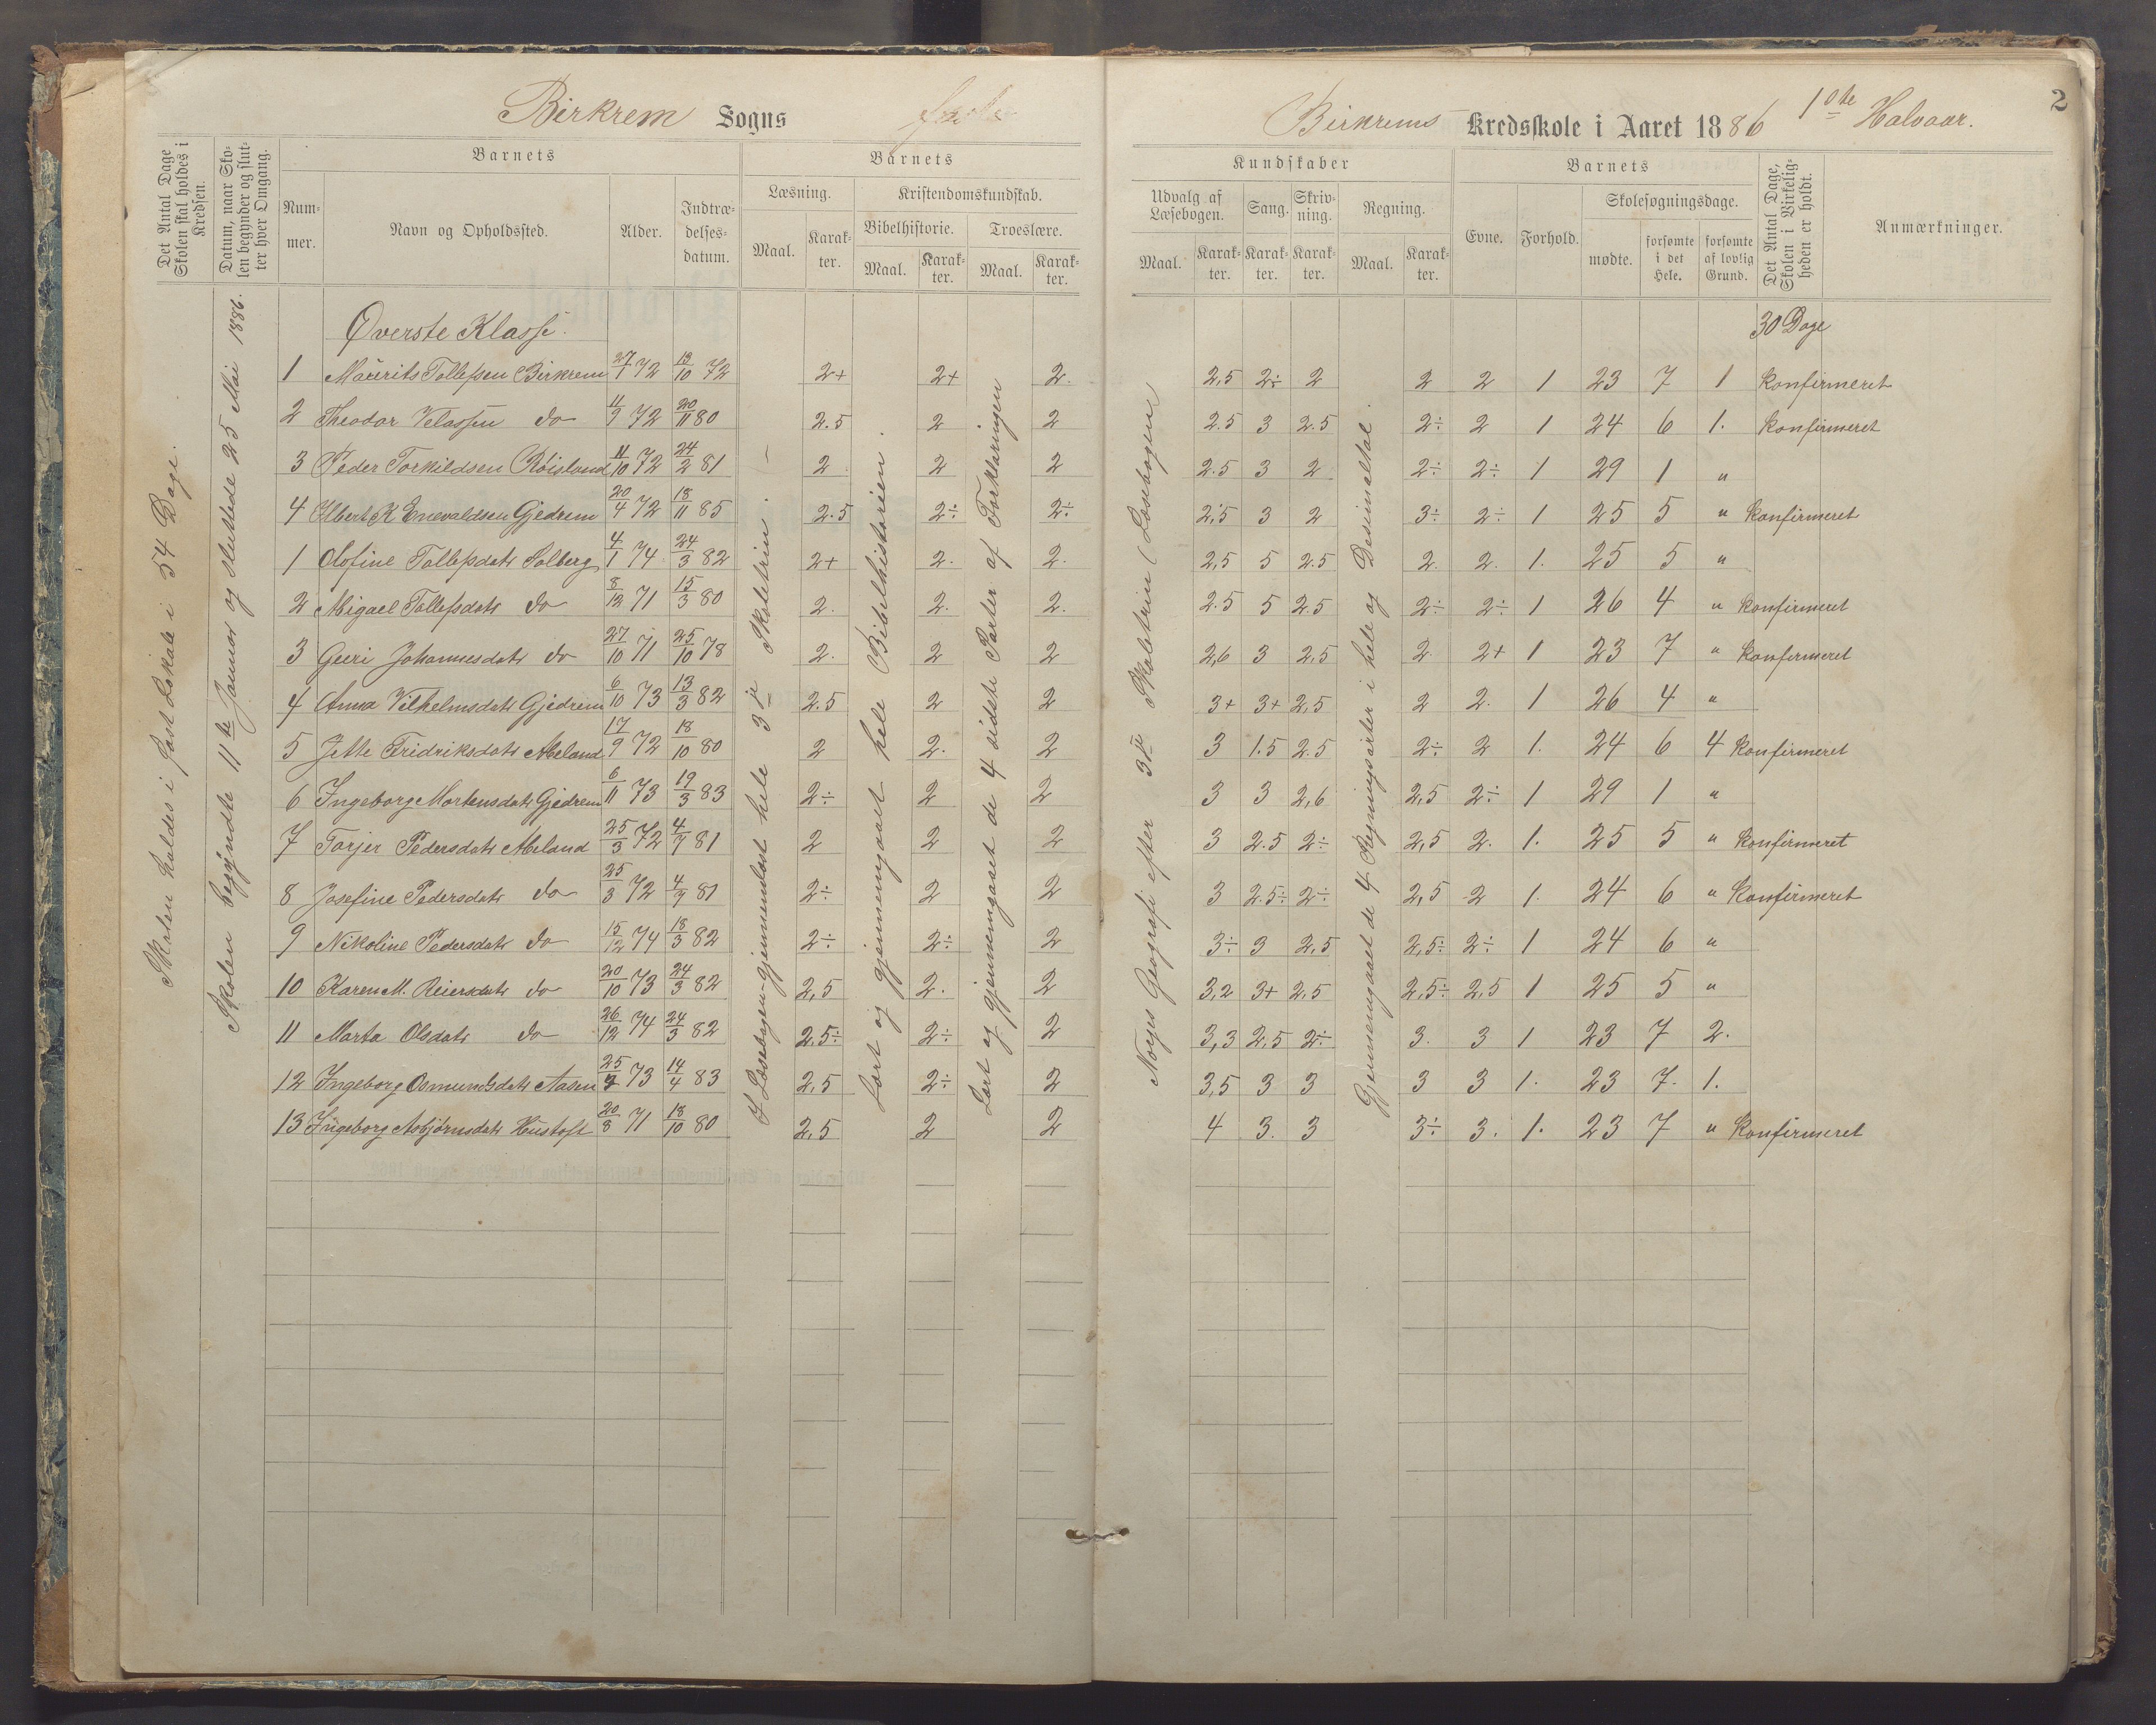 Birkrem Sogns faste
Birkrems Kredsskole i Aaret 1886 1ste Halvaar.
2
Det Antal Dage Skolen skal holdes i Kredsen.
Datum, naar Skolen begynder og slutter hver Omgang.
Barnets
Nummer.
Navn og Opholdssted.
Alder.
Indtrædelsesdatum.
Barnets
Læsning.
Maal.
Karakter.
Kristendomskundskab.
Bibelhistorie.
Maal.
Karakter.
Troeslære.
Maal.
Karakter.
Kundskaber
Udvalg af Læsebogen.
Maal.
Karakter.
Sang.
Karakter.
Skrivning.
Karakter.
Regning.
Maal.
Karakter.
Barnets
Evne.
Forhold.
Skolesøgningsdage.
mødte.
forsømte i det Hele.
forsømte af lovlig Grund.
Det Antal Dage, Skolen i Virkeligheden er holdt.
Anmærkninger.
Skolen holdes i fast Lokale i 54 Dage.
Skolen begyndte 11te Januar og sluttede 25 Mai 1886.
I Læsebogen gjennemlæst hele 3je Skoletrin.
Lært og gjennemgaaet hele Bibelhistorien.
Lært og gjennemgaaet de 4 sidste Parter af Forklaringen
Norges Geografi efter 3je Skoletrin (Læsebogen
Gjennemgaaet de 4 Regningsarter i hele og Desimaltal.
Øverste Klasse.
30 Dage
1 Maurits Tollefsen Birkrem 27/1 72 13/10 72 2+ 2+ 2. 2,5 2÷ 2 2 2 1 23 7 1 Konfirmeret
2 Theodor Velassen do 11/9 72 20/11 80 2.5 2 2 2.5 3 2.5 2÷ 2 1 24 6 1. Konfirmeret
3 Peder Torkildsen Røisland 11/10 72 24/2 81 2 2 2 2.5 3 2 2÷ 2÷ 1 29 1 "
4 Albert K Enevaldsen Gjedrem 20/4 72 18/11 85 2.5 2÷ 2÷ 2,5 3 2 3÷ 2÷ 1 25 5 " Konfirmeret
1 Olofine Tollefsdatr Solberg 4/1 74 24/3 82 2+ 2. 2. 2,5 5 2.5 2. 2. 1. 25 5 "
2 Migael Tollefsdatr do 8/12 71 15/3 80 2. 2. 2. 2.5 5 2.5 2÷ 2÷ 1 26 4 " Konfirmeret
3 Geeri Johannesdatr do 27/10 71 25/10 78 2. 2 2 2,6 3 2,5 2. 2+ 1 23 7 " Konfirmeret
4 Anna Vilhelmsdatr Gjedrem 6/10 73 13/3 82 2.5 2 2 3+ 3+ 2,5 2 2. 1 26 4 "
5 Jette Fridriksdatr Abeland 17/9 72 18/10 80 2 2. 2 3 1.5 2.5 2÷ 2 1. 24 6 4 Konfirmeret
6 Ingeborg Mortensdatr Gjedrem 6/11 73 19/3 83 2÷ 2 2 3 3 2,6 2,5 2÷ 1 29 1 "
7 Torjer Pedersdatr Abeland 25/3 72 4/7 81 2 2 2 3 2.5 2÷ 2,5 2. 1. 25 5 " Konfirmeret
8 Josefine Pedersdatr do 25/3 72 4/7 81 2÷ 2 2 3 2.5÷ 2÷ 2,5 2 1. 24 6 " Konfirmeret
9 Nikoline Pedersdatr do 15/12 74 18/3 82 2÷ 2÷ 2 3÷ 3 2,5 2,5÷ 2÷ 1 24 6 "
10 Karen M. Reiersdatr do 20/10 73 24/3 82 2,5 2. 2 3,2 3+ 2,5 2,5÷ 2,5 1 25 5 "
11 Marta Olsdatr do 26/12 74 24/3 82 2,5÷ 2÷ 2 3,3 2,5 2÷ 3. 3 1 23 7 2.
12 Ingeborg Osmundsdatr Aasen 25/9 73 14/4 83 2,5 2÷ 2 3,5 3 3 3 3 1. 23 7. 1.
13 Ingeborg Asbjørnsdatr Hustoft 20/8 71 18/10 80 2,5 2 2 4 3. 3 3÷ 3. 1. 23 7 " Konfirmeret